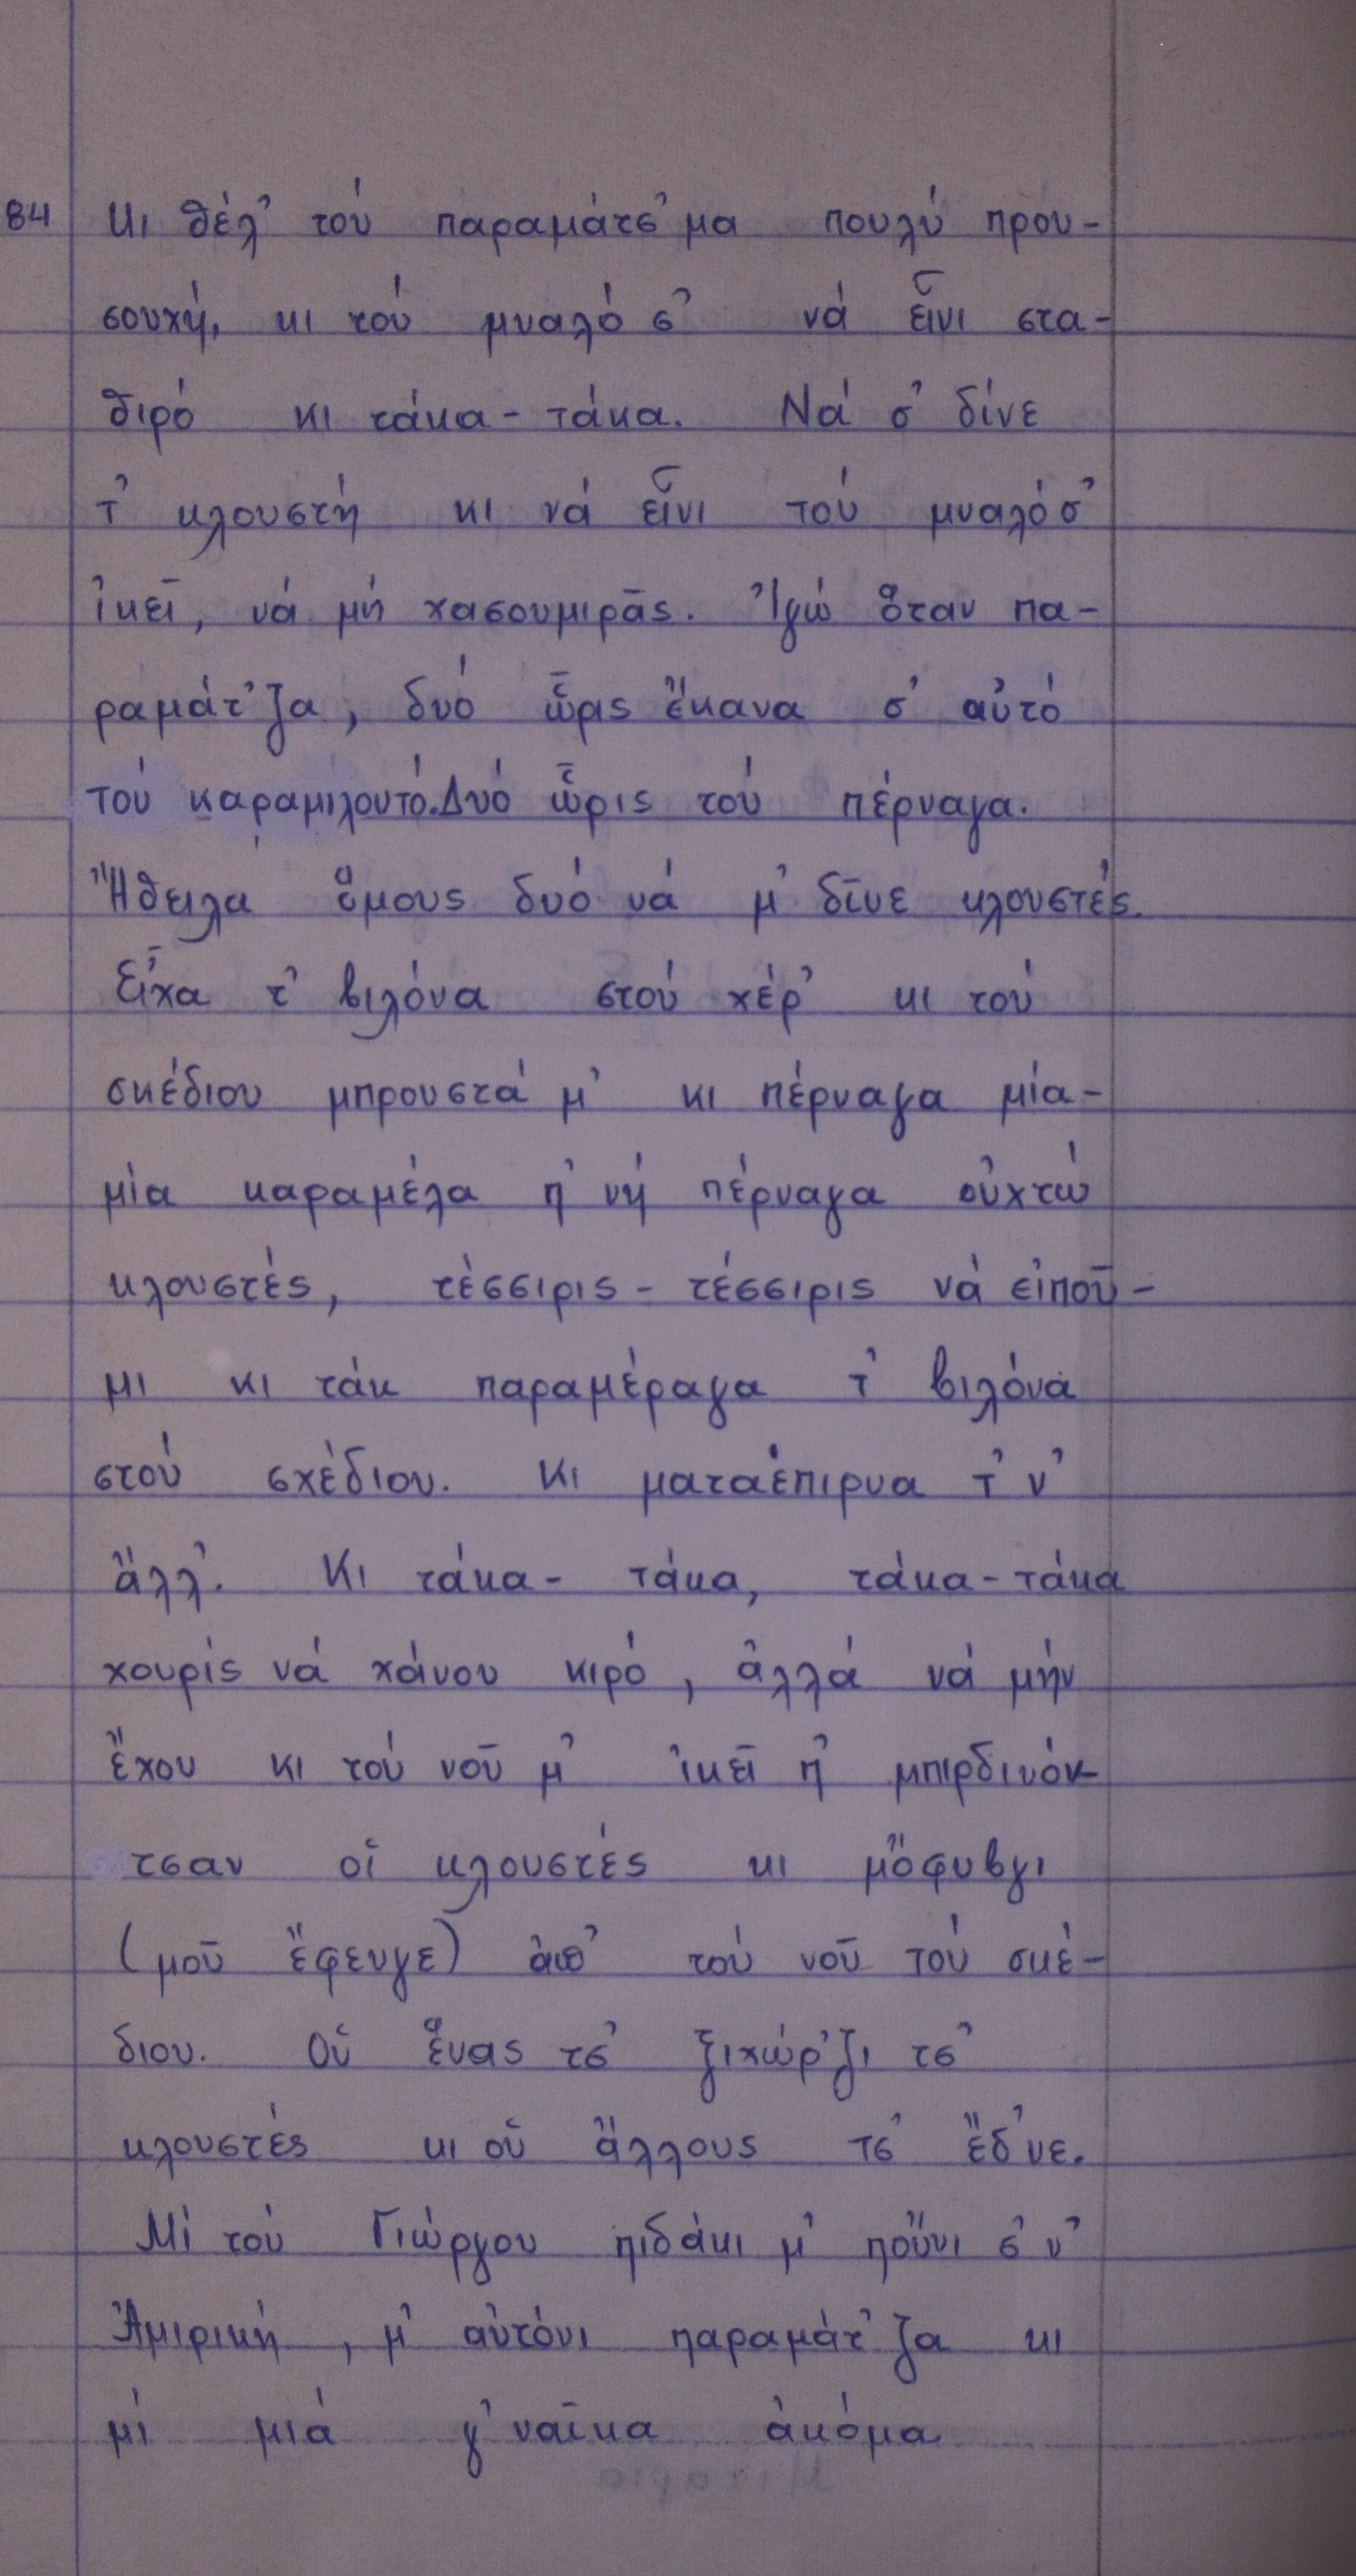 84 κι θέλ' τού παραμάτσ'μα πουλύ πρου-
σουχή, κι τού μυαλό σ' νά εἶνι στα-
θιρό κι τάκα-τάκα. Νά σ' δίνε
τ' κλουστή κι νά εἶνι τού μυαλό σ'
ἰκεῖ, νά μή χασουμιρᾶς. Ἰγώ ὅταν πα-
ραμάτ'ζα, δυό ὧρις ἔκανα σ' αὐτό
τού καραμιλουτό. Δυό ὧρις τού πέρναγα.
Ἤθειλα ὅμους δυό νά μ' δῖνε κλουστές.
Εἶχα τ' βιλόνα στού χέρ' κι τού
σκέδιου μπρουστά μ' κι πέρναγα μία-
μία καραμέλα ἤ νή πέρναγα οὐχτώ
κλουστές, τέσσιρις-τέσσιρις νά εἰποῦ-
μι κι τάκ παραμέραγα τ' βιλόνα
στού σχέδιου. Κι ματαέπιρνα τ'ν'
ἄλλ'. Κι τάκα-τάκα, τάκα-τάκα
χουρίς νά χάνου κιρό, ἀλλά νά μήν
ἔχου κι τού νοῦ μ' ἰκεῖ ἤ μπιρδινόκ-
τσαν οἱ κλουστές κι μὄφυβγι
(μοῦ ἔφευγε) ἀπ' τού νοῦ τού σκέ-
διου. Οὑ ἕνας τσ' ξιχώρ'ζι τσ'
κλουστές κι οὑ ἄλλους τσ' ἔδ'νε.
Μί τού Γιώργου πιδάκι μ' ποὔνι σ'ν'
Ἀμιρική, μ' αὐτόνι παραμάτ'ζα κι
μί μιά γ'ναῖκα ἀκόμα.